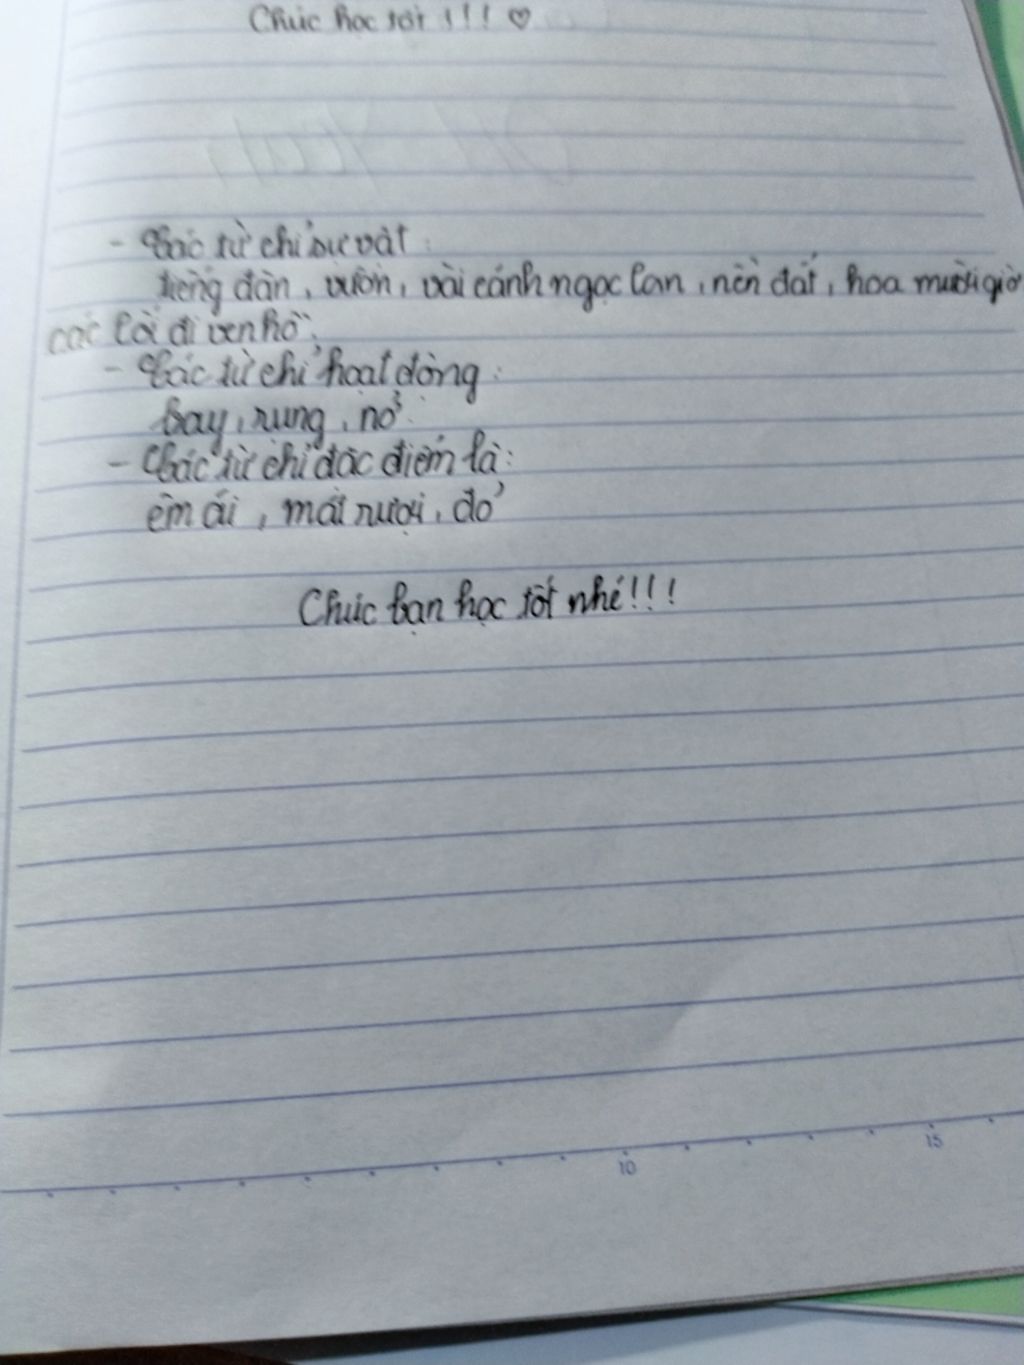 Chúc học tốt !!! ♡
- Các từ chỉ sự vật :
tiếng đàn, vườn, vài cánh ngọc lan, nền đất, hoa mười giờ
các lối đi ven hồ.
- Các từ chỉ hoạt động :
bay, rung, nở.
- Các từ chỉ đặc điểm là :
êm ái, mát rượi, đỏ
Chúc bạn học tốt nhé!!!
10
15